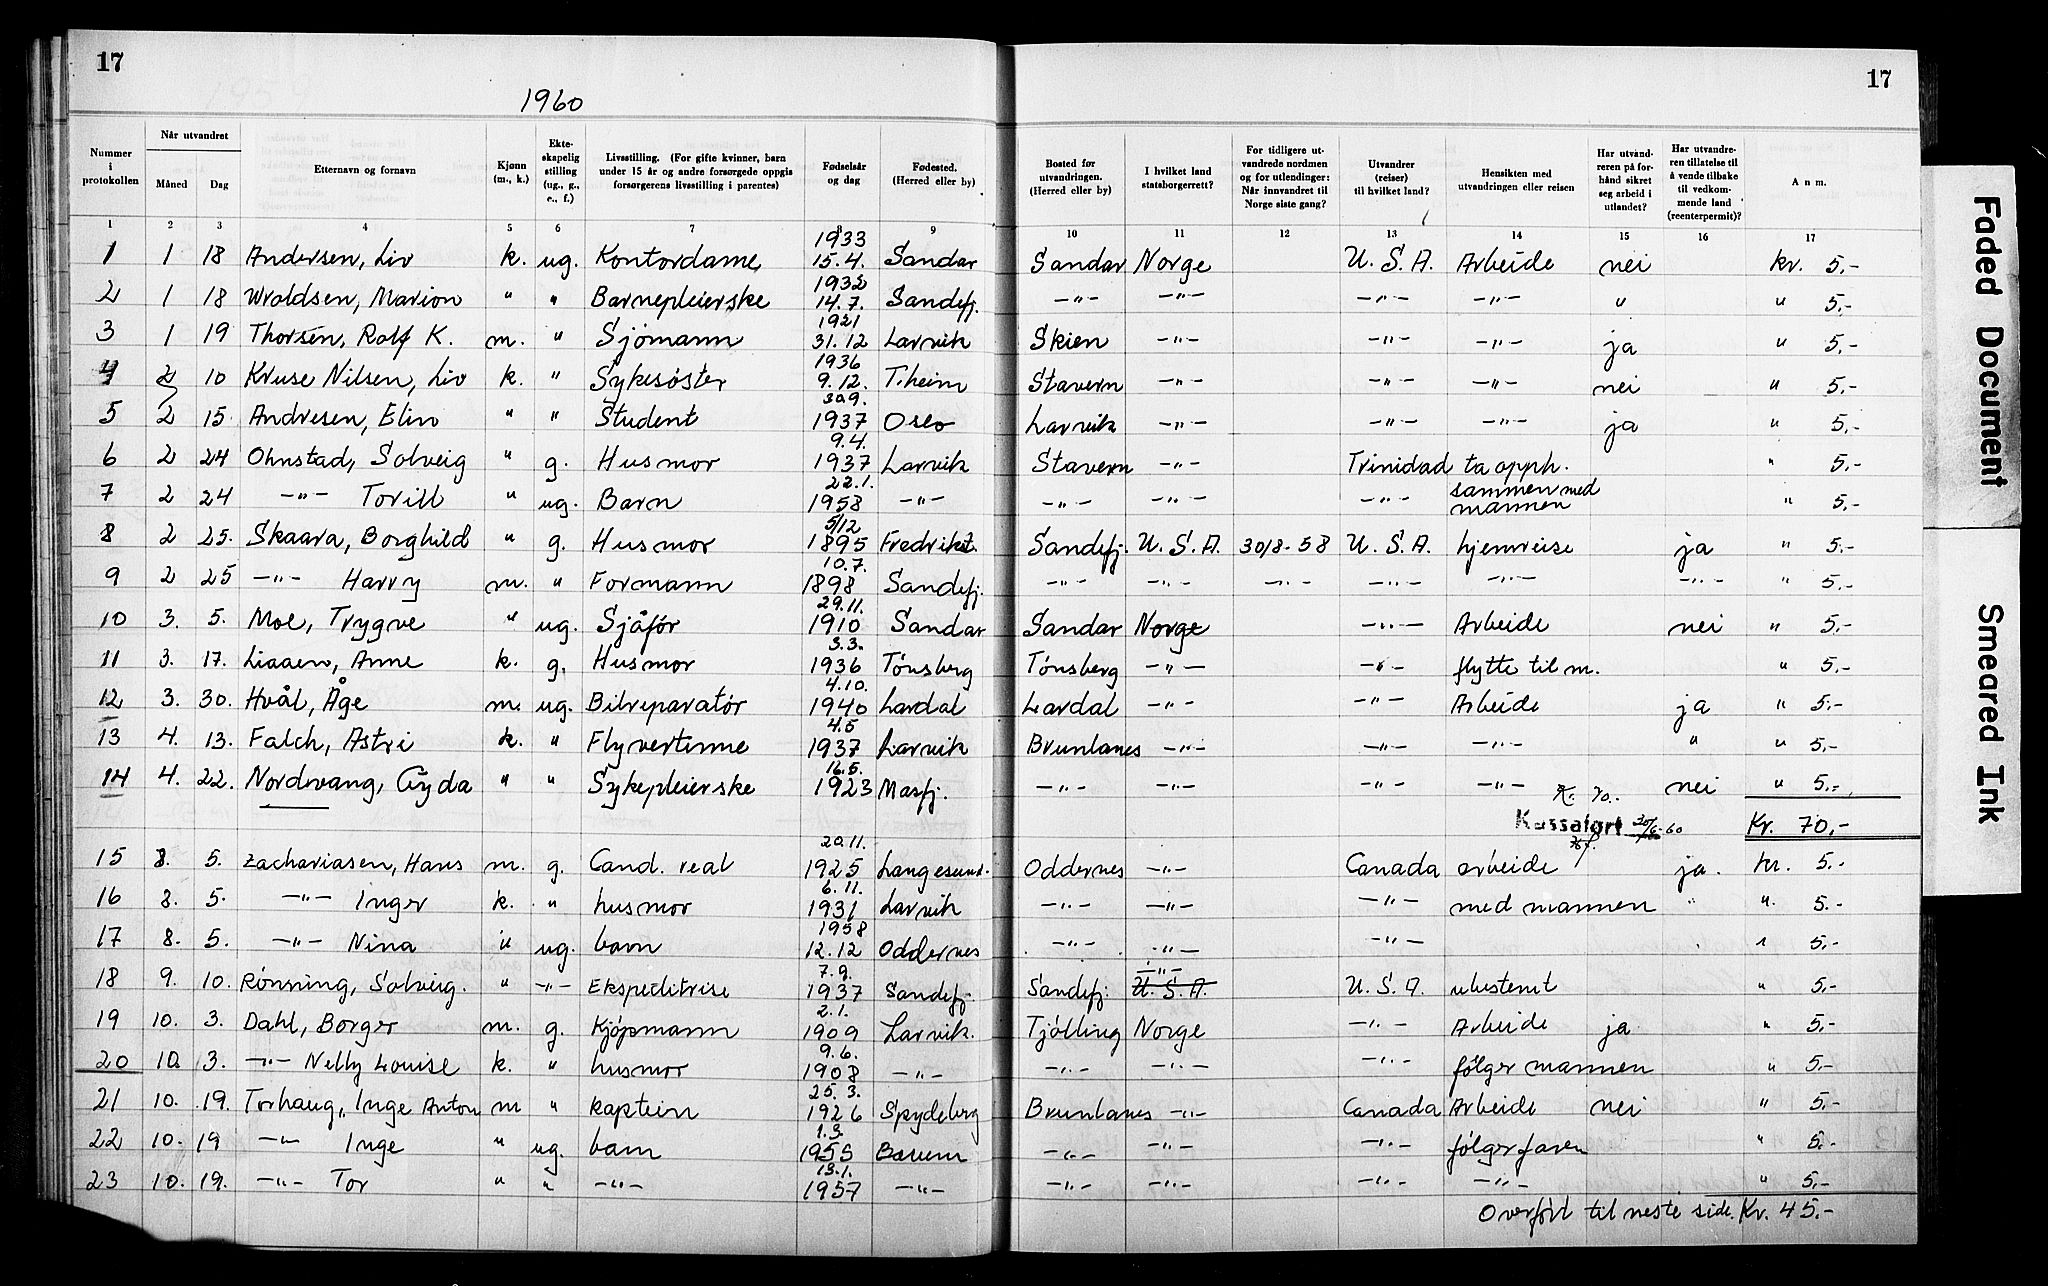 17
17
1960
Nummer i protokollen | Når utvandret Måned | Dag | Etternavn og fornavn | Kjønn (m., k.) | Ekteskapelig stilling (ug., g., e., f.) | Livsstilling. (For gifte kvinner, barn under 15 år og andre forsørgede oppgis forsørgerens livsstilling i parentes) | Fødselsår og dag | Fødested. (Herred eller by) | Bosted før utvandringen. (Herred eller by) | I hvilket land statsborgerrett? | For tidligere utvandrede nordmen og for utlendinger: Når innvandret til Norge siste gang? | Utvandrer (reiser) til hvilket land? | Hensikten med utvandringen eller reisen | Har utvandreren på forhånd sikret seg arbeid i utlandet? | Har utvandreren tillatelse til å vende tilbake til vedkommende land (reenterpermit)? | Anm.
1 2 3 4 5 6 7 8 9 10 11 12 13 14 15 16 17
1 1 18 Andersen, Liv k. ug. Kontordame 1933 15.4. Sandar Sandar Norge U.S.A. Arbeide nei kr. 5,-
2 1 18 Wroldsen, Marion " " Barnepleierske 1932 14.7. Sandefj. -"- -"- -"- -"- " " 5,-
3 1 19 Thorsen, Rolf K. m. " Sjömann 1921 31.12 Larvik Skien -"- -"- -"- ja " 5,-
4 2 10 Kruse Nilsen, Liv k. " Sykesøster 1936 9.12. T.heim Stavern -"- -"- -"- nei " 5,-
5 2 15. Andresen, Elin " " Student 30.9. 1937 Oslo Larvik -"- -"- -"- ja " 5,-
6 2 24 Ohnstad, Solveig " g. Husmor 9.4. 1937 Larvik Stavern -"- Trinidad ta opph. " 5,-
7 2 24 -"- Torill " ug. Barn 22.1. 1958 -"- -"- -"- -"- sammen med mannen " 5,-
8 2 25. Skaara, Borghild " g. Husmor 5/12 1895 Fredrikst. Sandefj. U.S.A. 30/8-58 U.S.A. hjemreise ja " 5,-
9 2 25 -"- Harry m. " Formann 10.7. 1898 Sandefj. -"- -"- -"- -"- -"- -"- " 5,-
10 3. 5. Moe, Trygve " ug. Sjåfør 29.11. 1910 Sandar Sandar Norge -"- Arbeide nei " 5,-
11 3. 17. Liaaen, Anne k. g. Husmor 3.3. 1936 Tønsberg Tønsberg -"- -"- flytte til m. " 5,-
12 3. 30. Hvål, Åge m. ug. Bilreparatør 4.10. 1940 Lardal Lardal -"- -"- Arbeide ja " 5,-
13 4. 13. Falch, Astri k. " Flyvertinne 4.5 1937 Larvik Brunlanes -"- -"- -"- " " 5,-
14 4. 22. Nordvang, Gyda " " Sykepleierske 16.5. 1923 Masfj. -"- -"- -"- -"- nei " 5,-
K. 70.
Kassafort 30/6-60 Kr. 70,-
15 8. 5. Zachariasen, Hans m. g. Cand. real 20.11. 1925 Langesund. Oddernes -"- Canada arbeide ja. kr. 5.-
16 8. 5. -"- Inger k. " husmor 6.11. 1931 Larvik -"- -"- -"- med mannen " ". 5.-
17 8. 5. -"- Nina " ug. barn 1958 12.12 Oddernes -"- -"- -"- " 5,-
18 9. 10. Rönning, Solveig. " -"- Ekspeditrise 7.9. 1937 Sandefj. Sandefj. -"- U.S.A. U.S.A. ubestemt " 5,-
19 10. 3. Dahl, Borger m. g. Kjöpmann 2.1. 1909 Larvik. Tjölling Norge -"- Arbeide ja " 5,-
20 10. 3. -"- Nelly Louise k. " husmor 9.6. 1908 -"- -"- -"- -"- fölger mannen " 5,-
21 10. 19. Torhaug, Inge Anton m " kaptein 25.3. 1926 Spydeberg Brunlanes -"- Canada Arbeide nei " 5,-
22 10. 19 -"- Inge " ug. barn 1.3. 1955 Bærum -"- -"- -"- fölger faren " 5.-
23 10. 19. -"- Tor " " -"- 13.1. 1957 -"- -"- -"- -"- -"- " 5,-
Overfört til neste side. Kr. 45.-
Faded Document
Smeared Ink